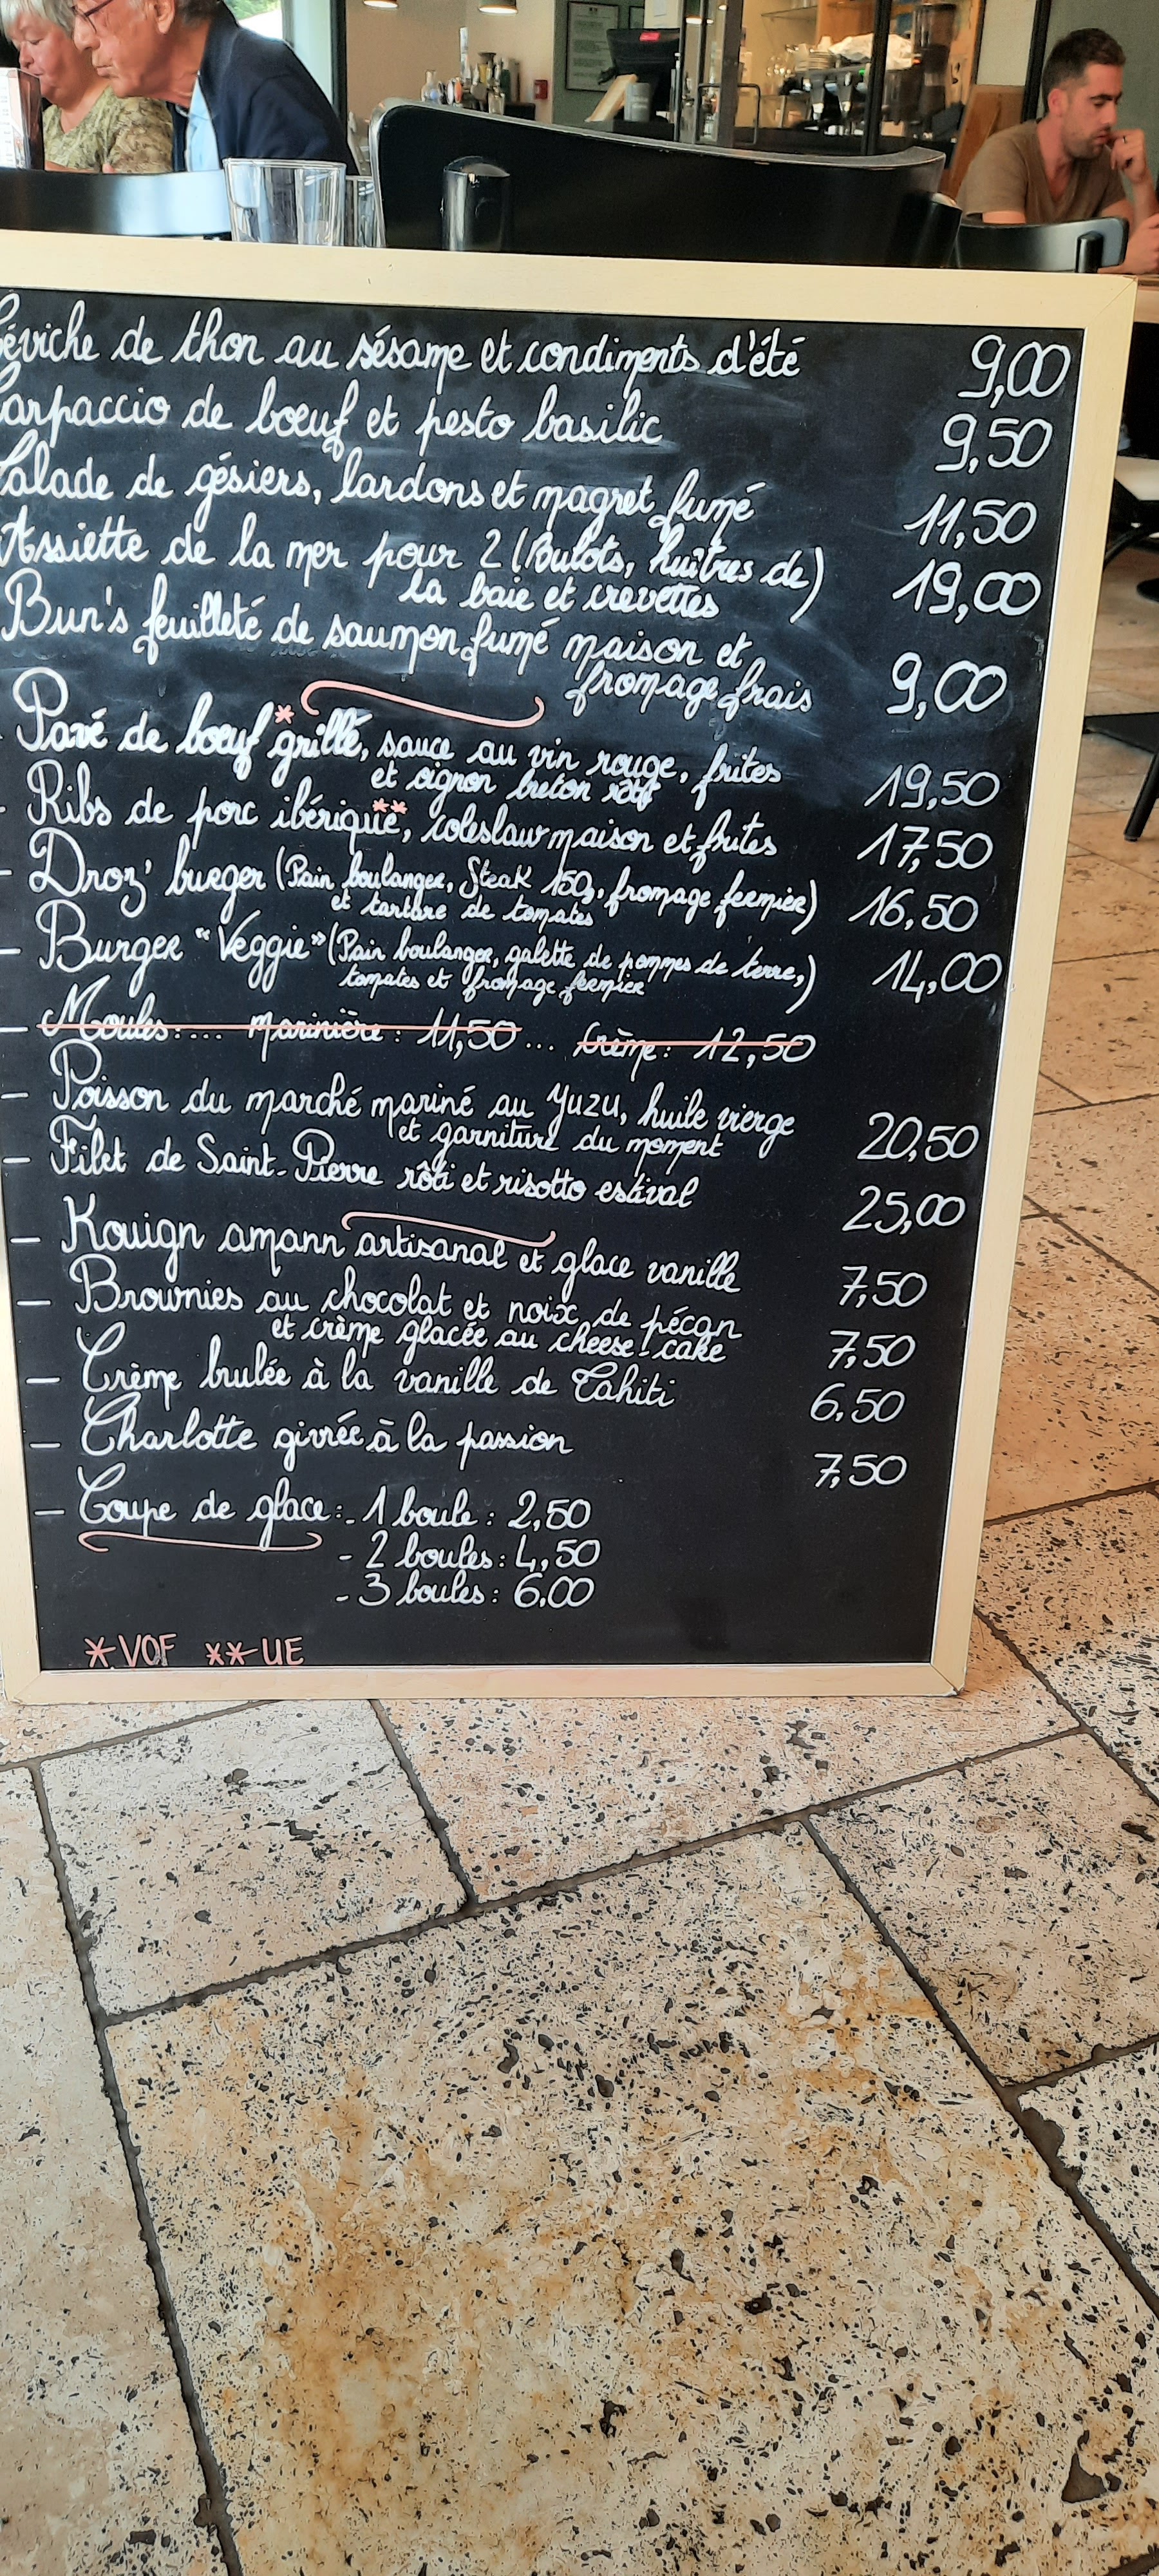 Céviche de thon au sésame et condiments d'été 9,00
Carpaccio de bœuf et pesto basilic 9,50
Salade de gésiers, lardons et magret fumé 11,50
Assiette de la mer pour 2 (Bulots, huîtres de) 19,00
la baie et crevettes
Bun's feuilleté de saumon fumé maison et
fromage frais 9,00
- Pavé de bœuf* grillé, sauce au vin rouge, frites
et oignon breton rôti 19,50
- Ribs de porc ibérique**, coleslaw maison et frites 17,50
- Droz' burger (Pain boulanger, Steak 150g, fromage fermier) 16,50
et tartare de tomates
- Burger "Veggie" (Pain boulanger, galette de pommes de terre,) 14,00
tomates et fromage fermier
- Moules:... marinière : 11,50 ... Crème : 12,50
- Poisson du marché mariné au Yuzu, huile vierge
et garniture du moment 20,50
- Filet de Saint-Pierre rôti et risotto estival 25,00
- Kouign amann artisanal et glace vanille 7,50
- Brownies au chocolat et noix de pécan
et crème glacée au cheese-cake 7,50
- Crème brulée à la vanille de Tahiti 6.50
- Charlotte givrée à la passion 7,50
- Coupe de glace :- 1 boule : 2,50
- 2 boules : 4,50
- 3 boules : 6.00
*VOF **UE